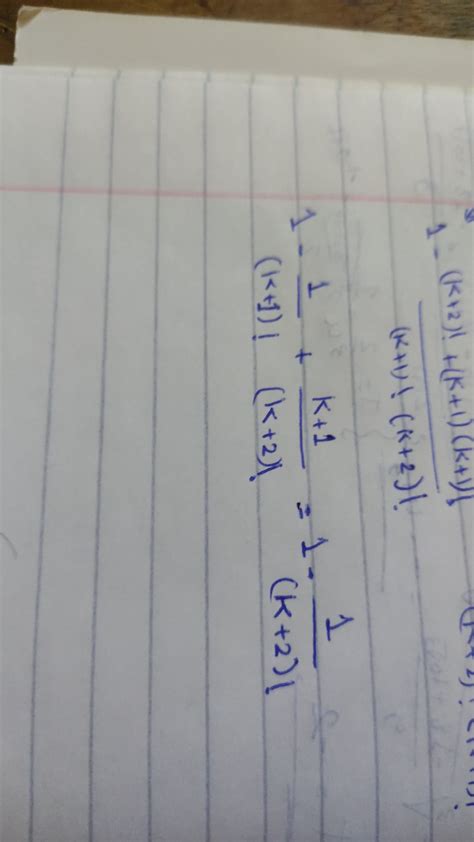 1 - (k+2)! + (k+1)(k+1)! / (k+1)! (k+2)!
1 - 1/(k+1)! + k+1/(k+2)! = 1 - 1/(k+2)!